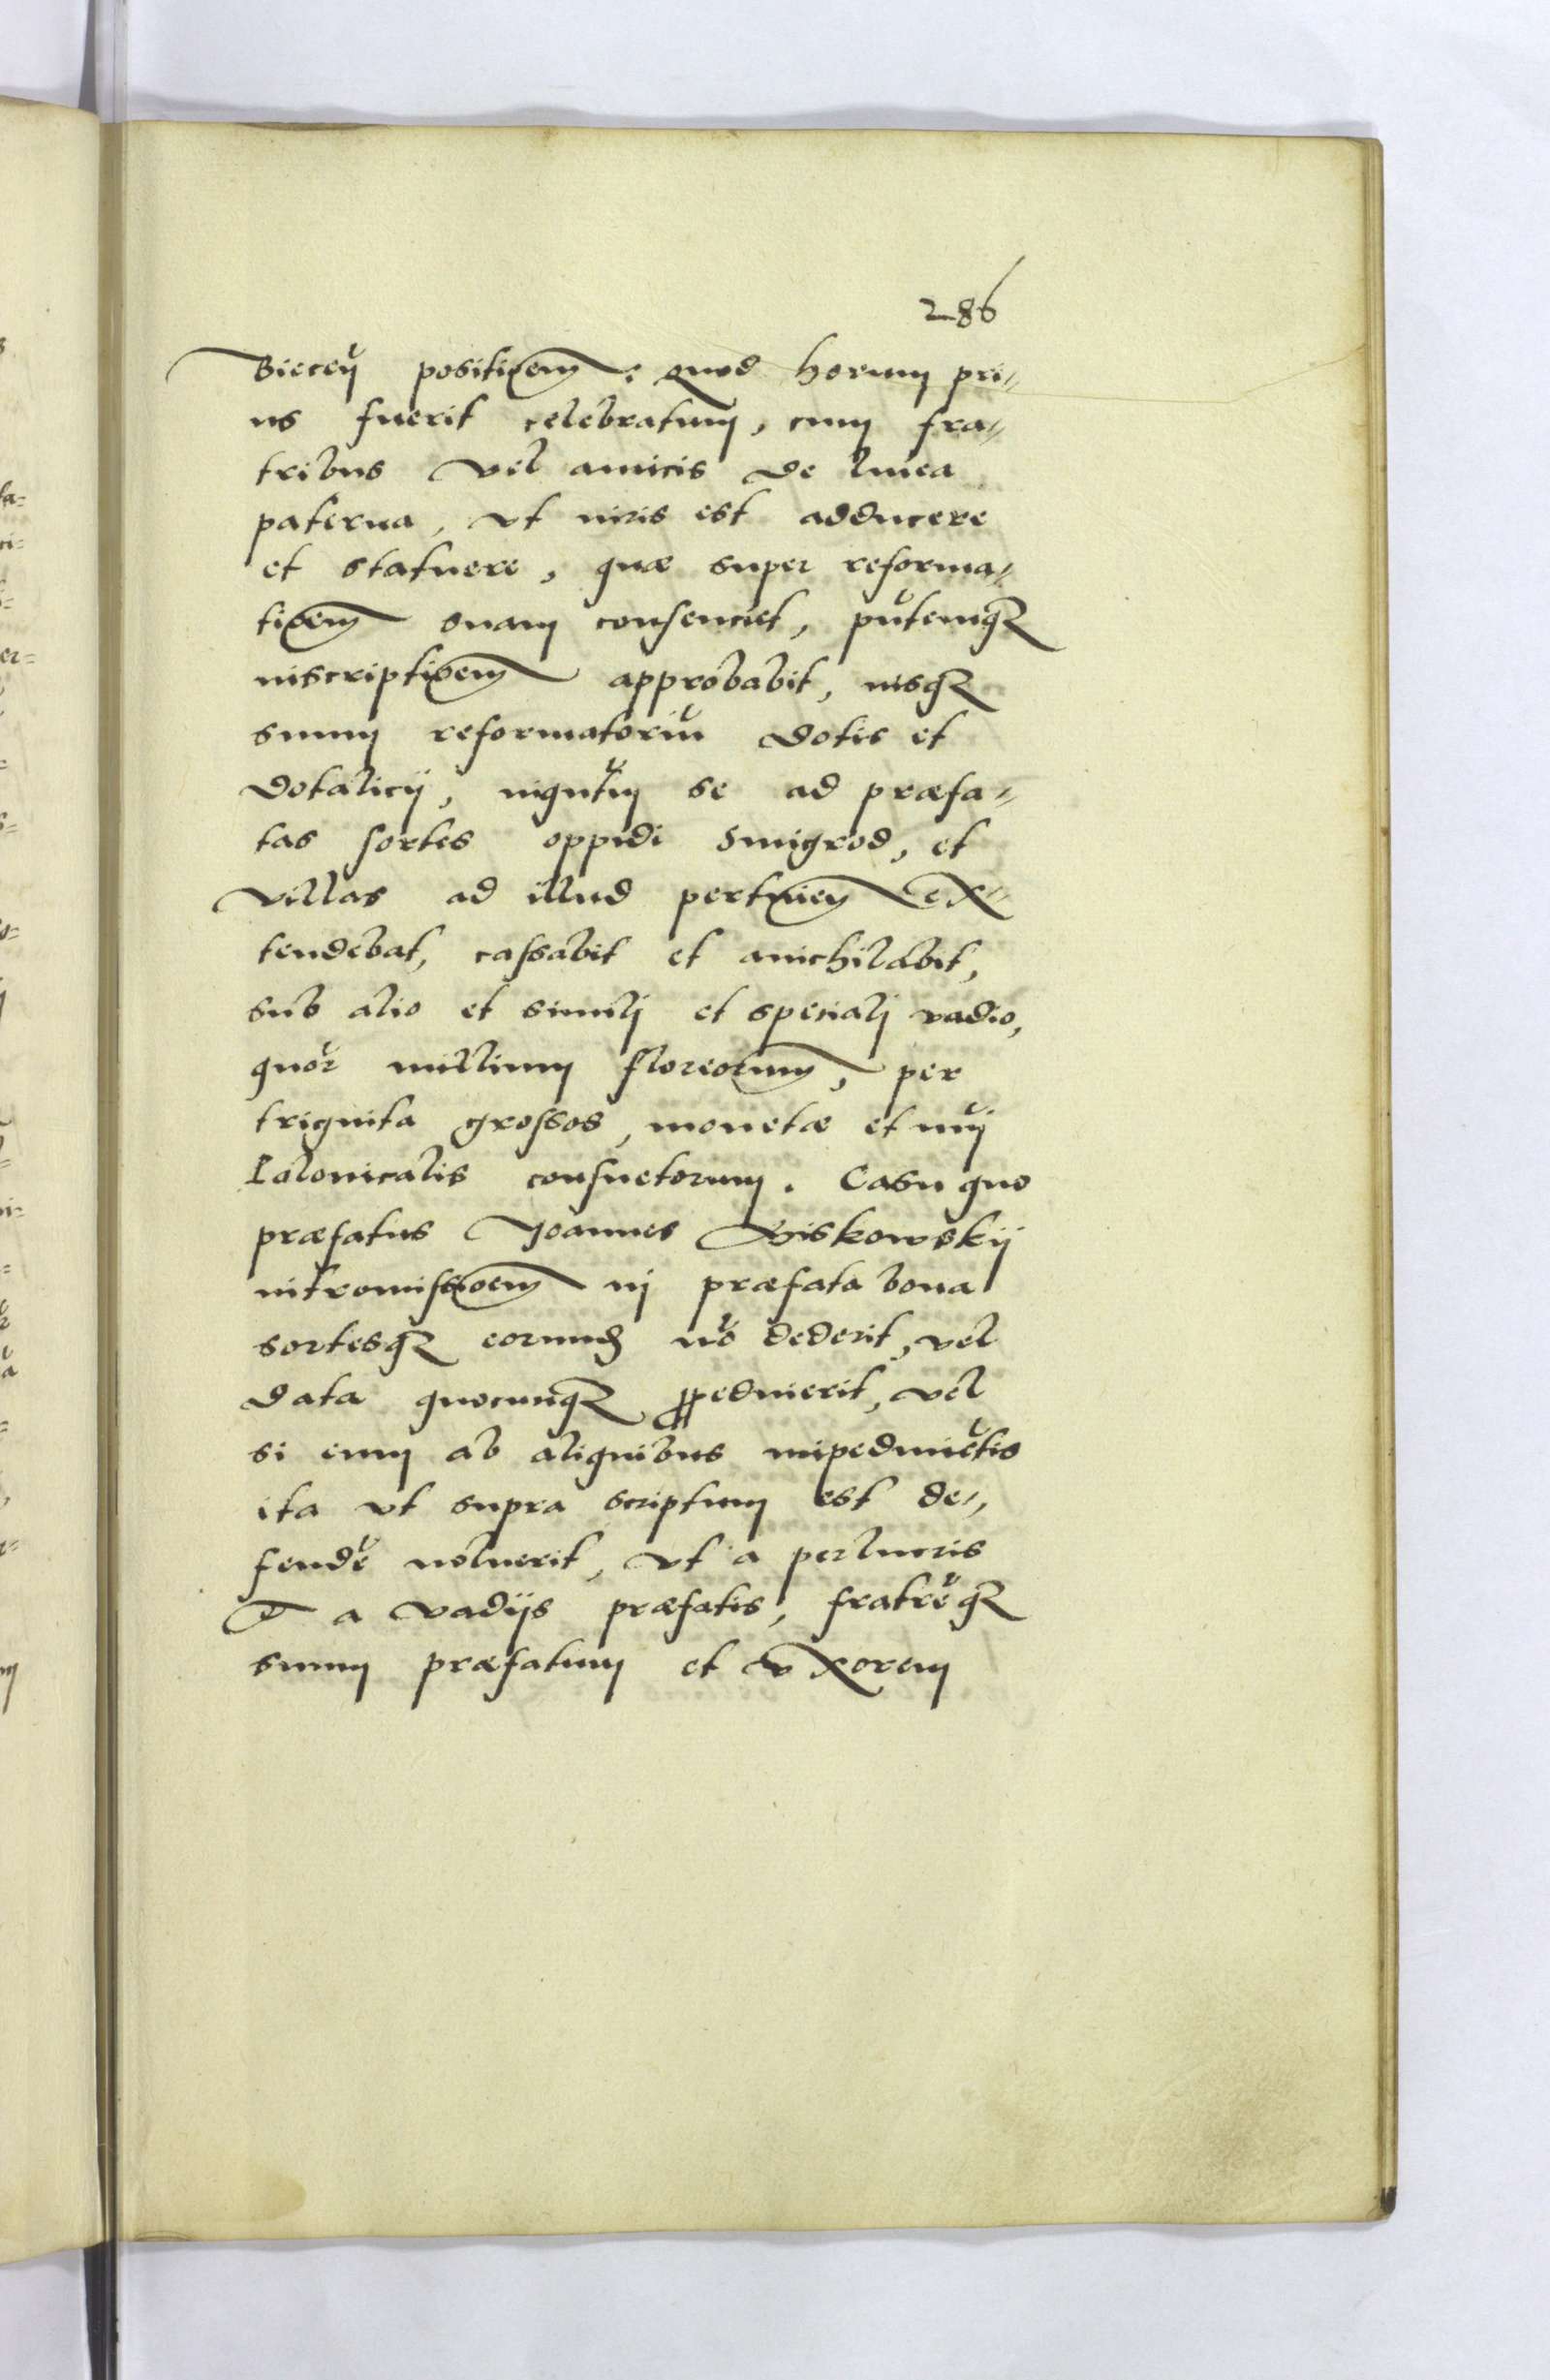 286
Biecen̄ positionem: quod horum pri=
us fuerit celebratum, cum fra=
tribus vel amicis de linea
paterna, vt iuris est adducere
et statuere, quæ super reforma=
tionem suam consenciet, pūtemqȝ
inscriptionem approbabit, iusqȝ
suum reformatoriū dotis et
dotalicij, inqūtum se ad præfa=
tas sortes oppidi Smigrod, et
villas ad illud pertinen̄ ex=
tendebat, cassabit et anichilabit,
sub alio et simili et speciali vadio,
quōr millium florenorum, per
triginta grossos, monetæ et nūi
Polonicalis consuetorum. Casu quo
præfatus Joannes Wiskowskij
intromissionem in præfata bona
sortesqȝ eorund̄ nō dederit, vel
data quocunqȝ impedierit, vel
si eum ab aliquibus impedimētis
ita vt supra scriptum est de=
fendē noluerit, vt a perlucris
et a vadijs præfatis, fratrēqȝ
suum præfatum et vxorem